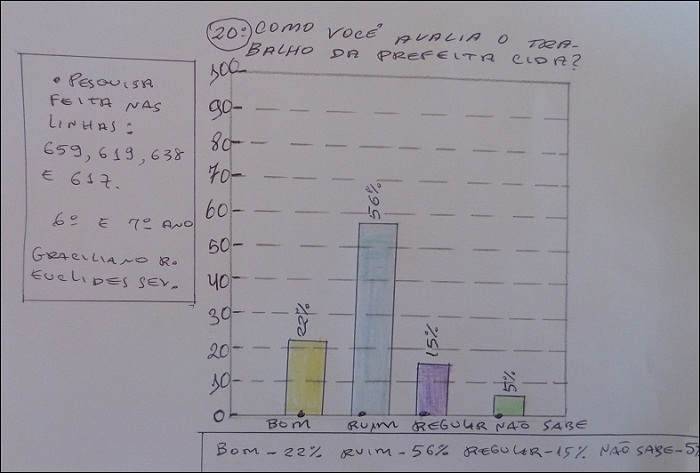 20º COMO VOCÊ AVALIA O TRA-
BALHO DA PREFEITA CIDA?
• PESQUISA
FEITA NAS
LINHAS:
659, 619, 638
E 617.
6º E 7º ANO
GRACILIANO R.
EUCLIDES SER.
100
90
80
70
60
50
40
30
20
10
0
22%
56%
15%
5%
BOM RUIM REGULAR NÃO SABE
BOM - 22% RUIM - 56% REGULAR - 15% NÃO SABE - 5%